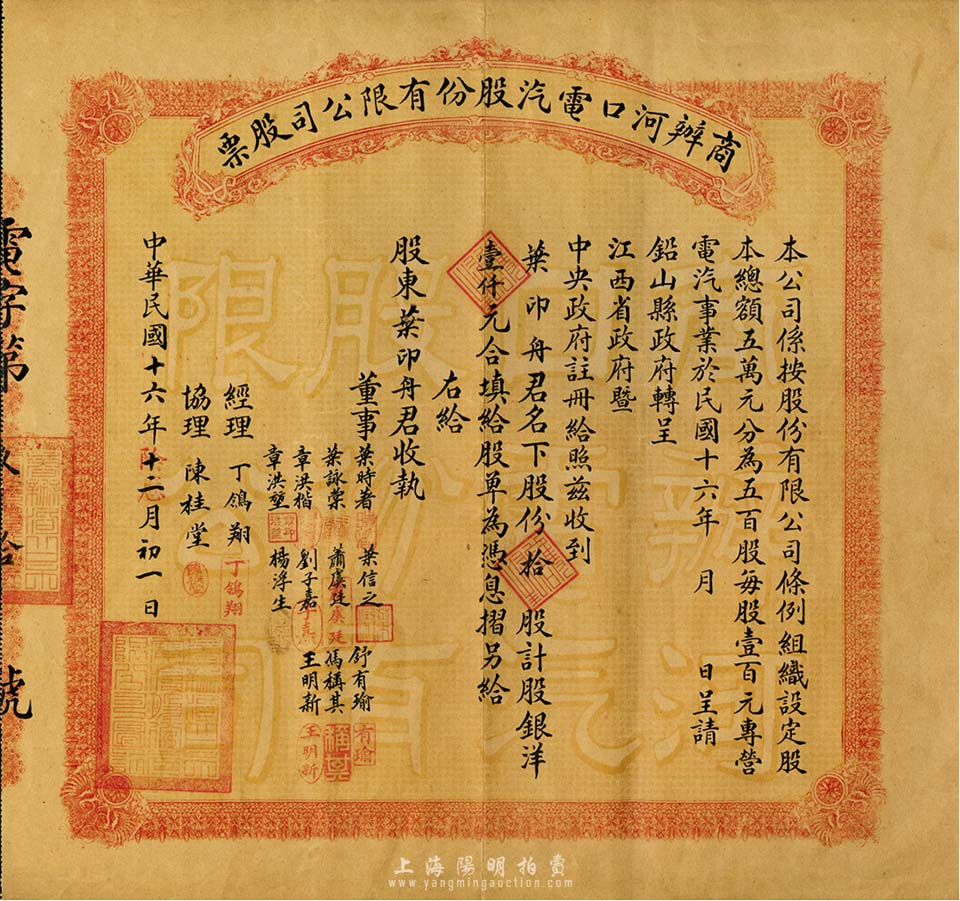 商辦河口電汽股份有限公司股票
本公司係按股份有限公司條例組織設定股
本總額五萬元分為五百股每股壹百元專營
電汽事業於民國十六年　月　日呈請
鉛山縣政府轉呈
江西省政府暨
中央政府註冊給照茲收到
葉印舟君名下股份拾股計股銀洋
壹仟元合填給股單為憑息摺另給
右給
股東葉印舟君收執
董事
葉時者　葉信之　舒有瑜
葉詠棠　蕭虞廷　馮稱其
章洪楷　劉子嘉　王明新
章洪堃　楊浮生
經理　丁鴿翔
協理　陳桂堂
中華民國十六年陰十二月初一日
電字第　拾　號
丁鴿翔
有瑜
稱其
王明新
上海陽明拍賣
www.yangmingauction.com